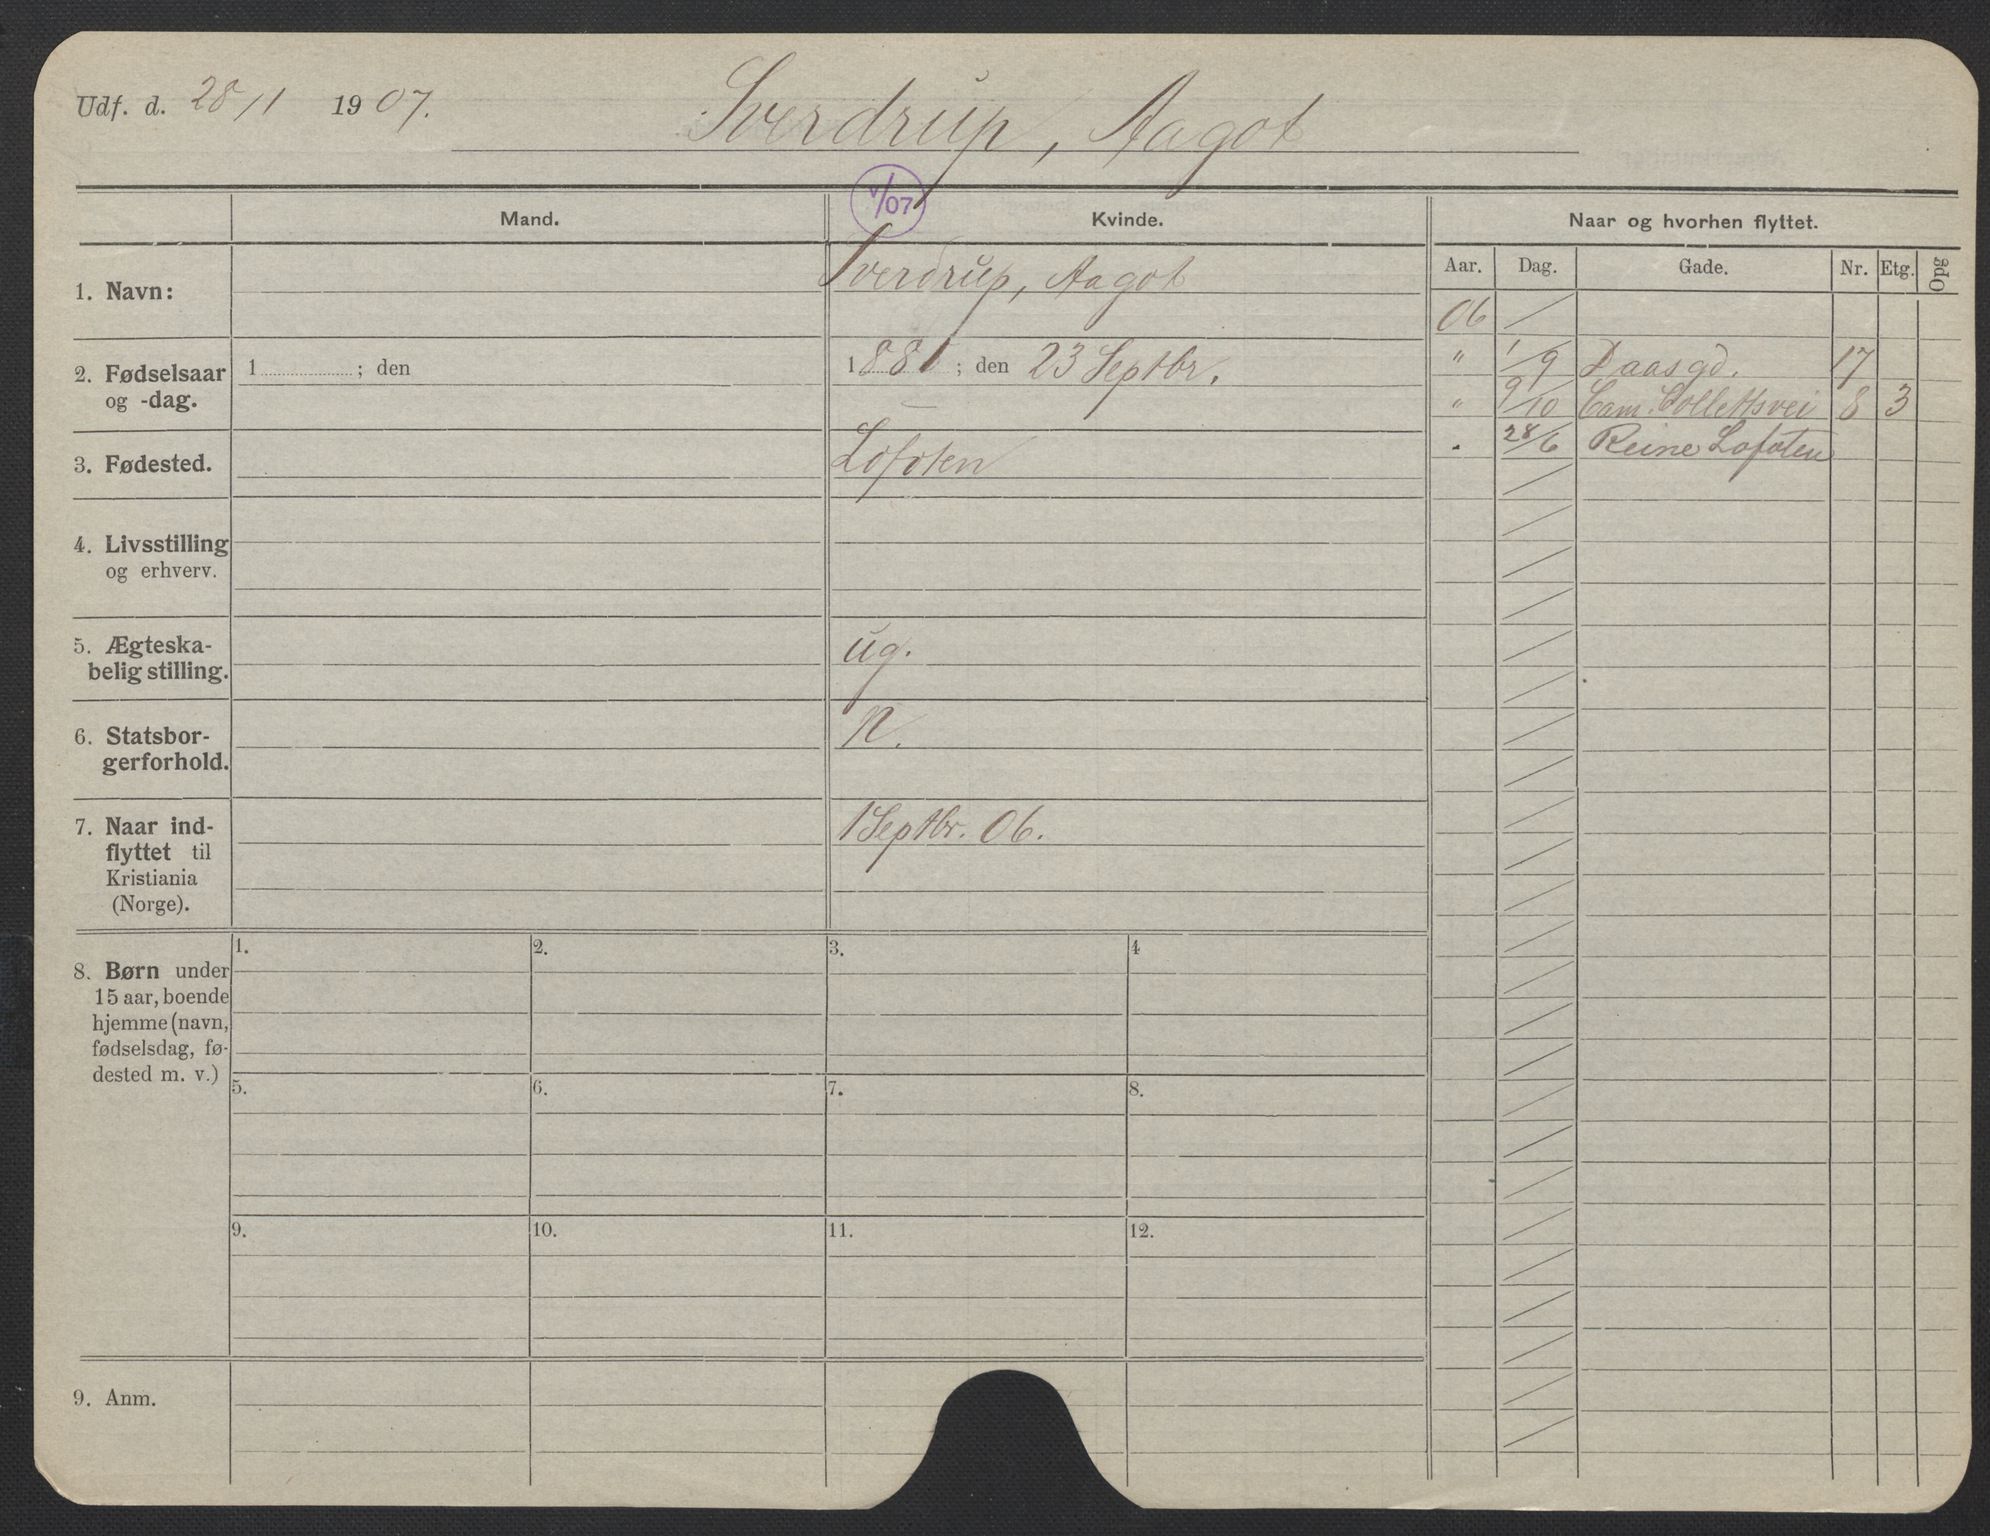 Udf. d. 28/1 1907.
Sverdrup, Aagot
V/07
Mand.
Kvinde.
Naar og hvorhen flyttet.
Aar. Dag. Gade. Nr. Etg. Opg
1. Navn:
Sverdrup, Aagot
2. Fødselsaar
og -dag.
1 ; den
1881 ; den 23 Septbr.
3. Fødested.
Lofoten
4. Livsstilling
og erhverv.
5. Ægteska-
belig stilling.
ug.
6. Statsbor-
gerforhold.
N.
7. Naar ind-
flyttet til
Kristiania
(Norge).
1 Septbr. 06.
06
" 1/9 Daasgd. 17
" 9/10 Cam. Collettsvei 8 3
" 28/6 Reine Lofoten
8. Børn under
15 aar, boende
hjemme (navn,
fødselsdag, fø-
dested m. v.)
1. 2. 3. 4
5. 6. 7. 8.
9. 10. 11. 12.
9. Anm.